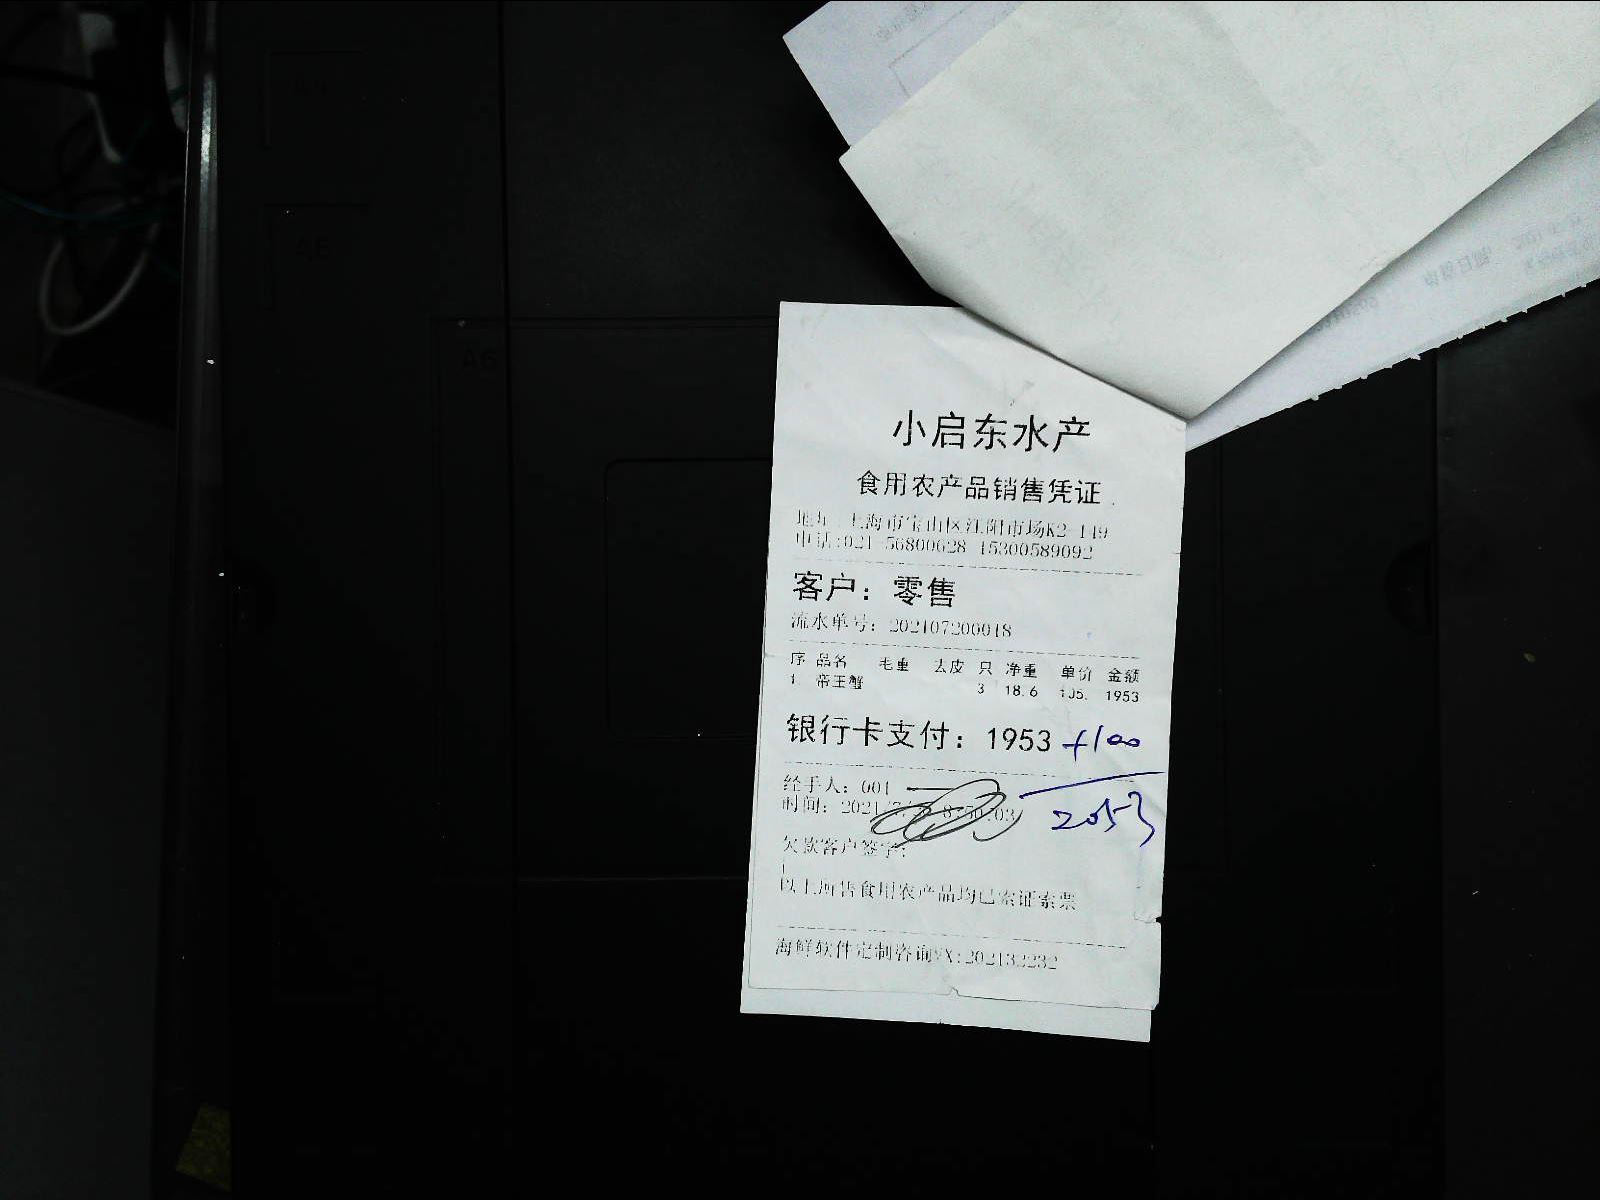 小启东水产
食用农产品销售凭证
地址:上海市宝山区江阳市场K2-149
电话:021-56800628 15300589092
客户：零售
流水单号：202107200018
序 品名 毛重 去皮 只 净重 单价 金额
1. 帝王蟹 3 18.6 105. 1953
银行卡支付：1953 +100
2053
经手人：001
时间：2021/7/ 8:50:03
欠款客户签字：
以上所售食用农产品均已索证索票
海鲜软件定制咨询VX:202132232
A6